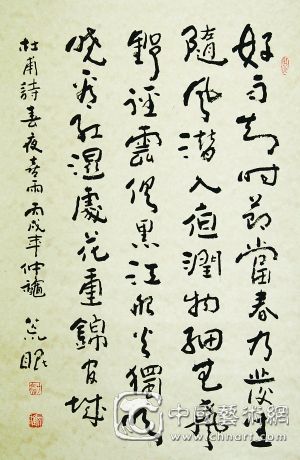 好雨知时節當春乃發生
隨風潛入夜潤物細無聲
野徑雲俱黑江船火獨明
曉看紅濕處花重錦官城
杜甫詩春夜喜雨丙戌年仲龝
中國藝術網
www.chnart.com